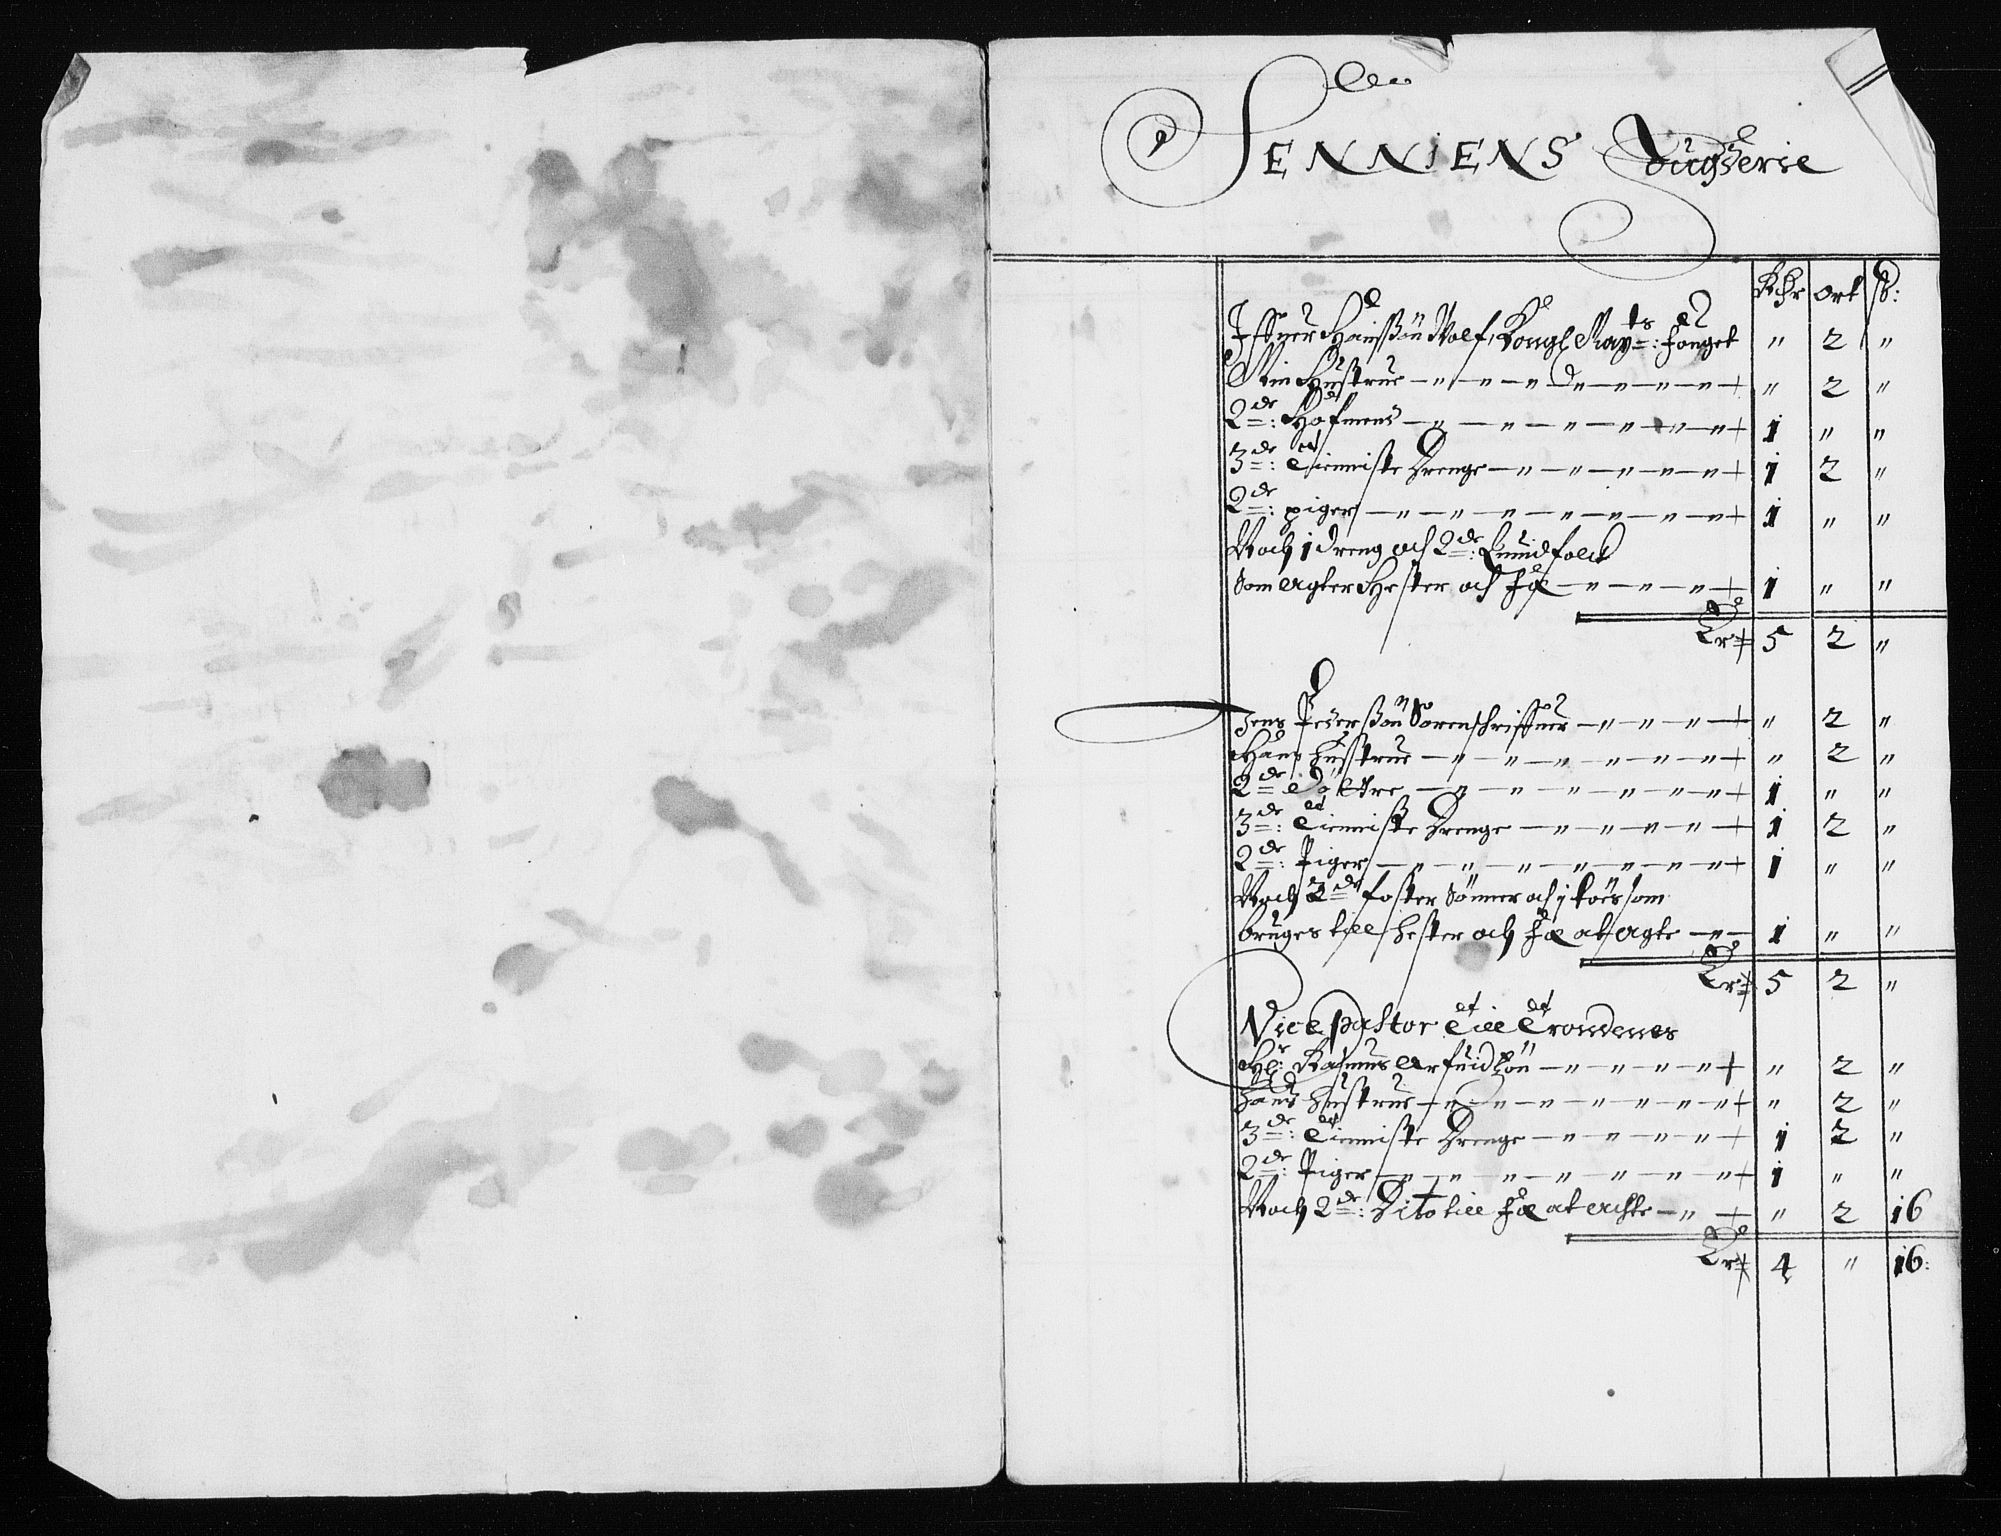 SENNIENS Fougderie
Rdr ort ß:
Iffuer Hanßøn Wolf, Kongl Mayts: fouget " 2 "
Min Hustrue — " — " — " — " — " — " 2 "
2de: Hofmend — " — " — " — " — " — 1 " "
3de: Tienniste Drenge — " — " — " — " — " — 1 2 "
2de: piger — " — " — " — " — " — " — 1 " "
Noch 1 dreng och 2de: quindfolck
som agter Hester och fæ — " — " — " — 1 " "
Er 5 2 "
Jens Pederßøn Sorenschriffuer — " — " — " — " 2 "
Hans hustrue — " — " — " — " — " — " — " 2 "
2de Døttre — " — " — " — " — " — 1 " "
3de: Tienniste Drenge — " — " — " — " — 1 2 "
2de: Piger — " — " — " — " — " — " — 1 " "
Noch 2de foster Sønner och 1 tøes som
bruges till hester och fæ at agte — " — 1 " "
Er 5 2 "
Vice pastor Till Trondenes
Hr: Rasmus Arfuidßøn — " — " — " — " — " 2 "
hans hustrue — " — " — " — " — " — " — " 2 "
3de: Tienniste Drenge — " — " — " — " — 1 2 "
2de: Piger — " — " — " — " — " — " — 1 " "
Noch 2de: Dito till fæ at achte — " — " 2 16
Er 4 " 16: